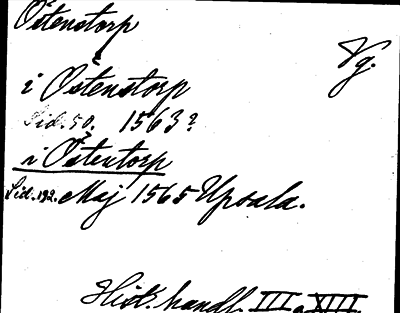 Östenstorp
Vg.
i Östenstorp
Sid. 50. 1563?
i Östentorp
Sid. 192. Maj 1565 Upsala.
Hist. handl. III o XIII